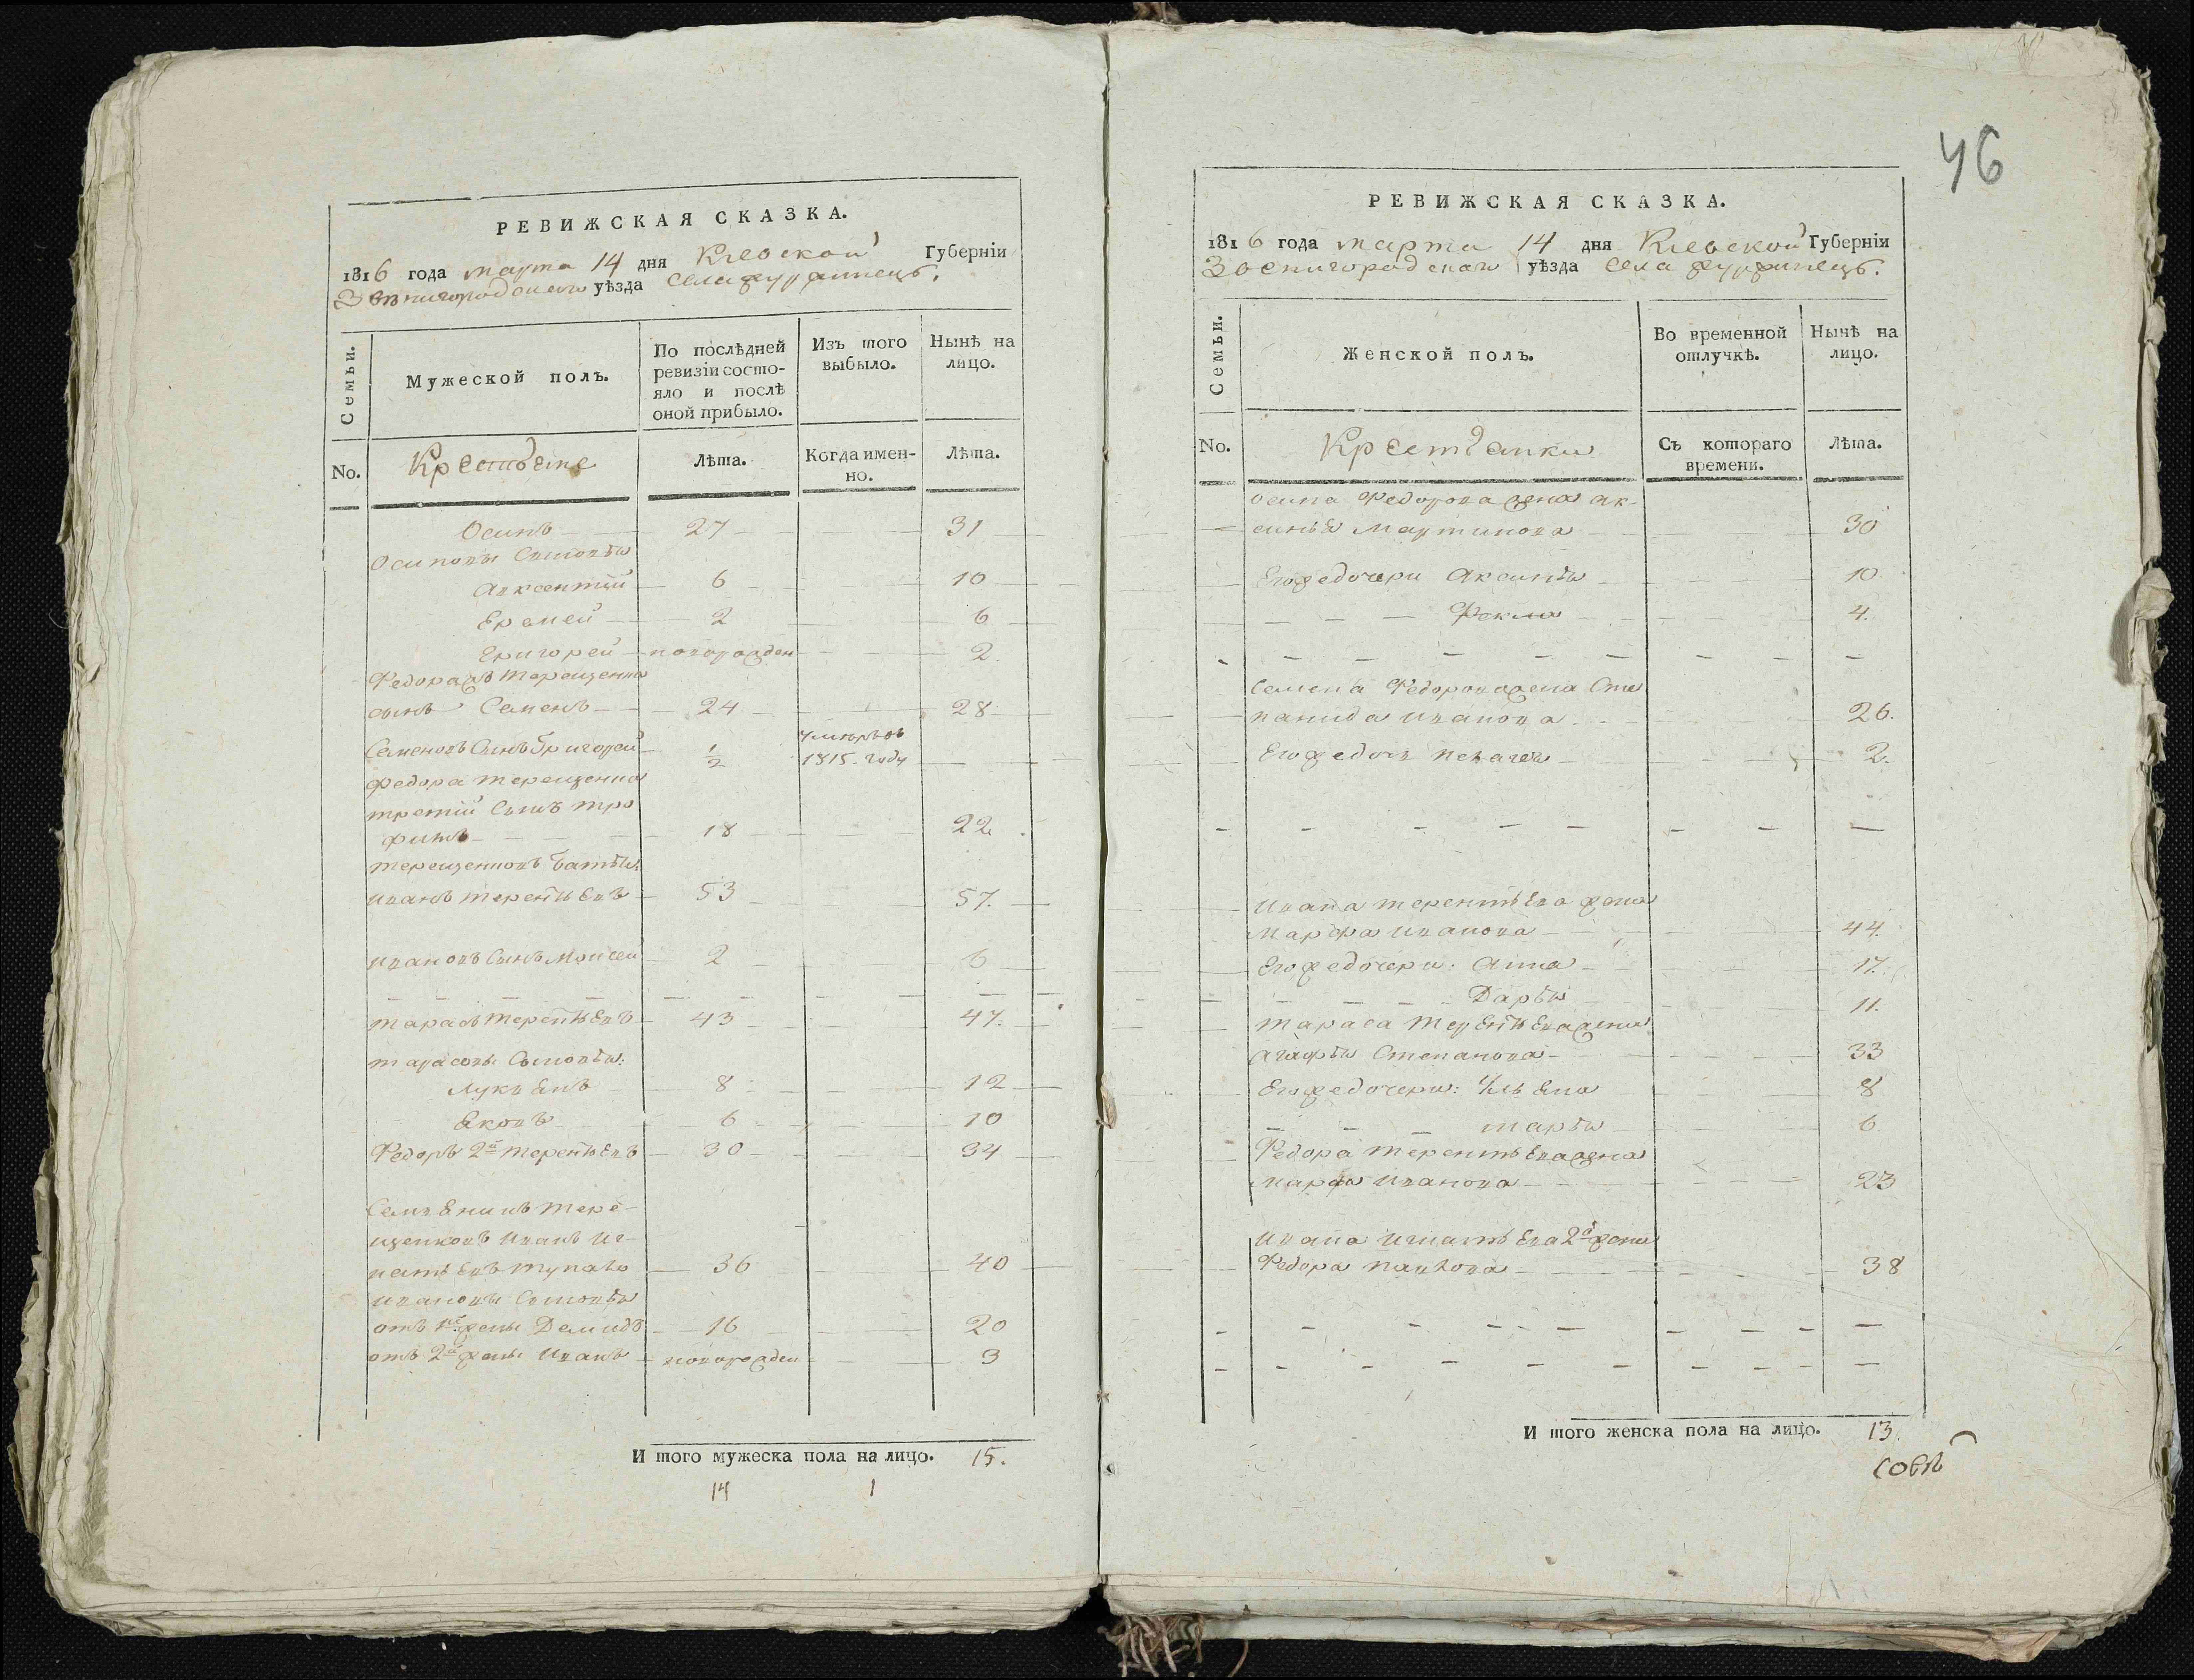 РЕВИЖСКАЯ СКАЗКА.
1816 года марта 14 дня Кіевской Губерніи
Звенигородскаго уѣзда села
Семьи.
Мужеской полъ.
По послѣдней ревизіи состо-
яло и послѣ
оной прибыло.
Изъ того
выбыло.
Нынѣ на
лицо.
No.
Крестьяне
Лѣта.
Когда имен-
но.
Лѣта.
Осипъ 27 31
Осиповы Сыновья
Авксентій 6 10
Еремей 2 6
Григорей новорожден 2
Федора Терещенка
сынъ Семенъ 24 28
Семеновъ Сынъ Григорей 1/2 умеръ въ 1815. году
Федора Терещенка
третій Сынъ Тро
фимъ 18 22.
Терещенковъ
Иванъ Терентьевъ 53 57.
Ивановъ Сынъ Моисей 2 6
Тарасъ Терентьевъ 43 47.
Тарасовы Сыновья:
Лукьянъ 8 12
Яковъ 6 10
Федоръ 2й Терентьевъ 30 34
Тере-
щенковъ Иванъ Иг-
натьевъ 36 40
Ивановы Сыновья
отъ 1й жены Демидъ 16 20
отъ 2й жены Иванъ новорожден 3
И того мужеска пола на лицо. 15.
14 1
46
РЕВИЖСКАЯ СКАЗКА.
1816 года марта 14 дня Кіевской Губерніи
Звенигородскаго уѣзда села
Семьи.
Женской полъ.
Во временной
отлучкѣ.
Нынѣ на
лицо.
No.
Крестьянки
Съ котораго
времени.
Лѣта.
Осипа Федорова жена Ак-
синья Мартинова 30
Егожедочери Аксинья 10
Фекла 4.
Семена Федорова жена Сте
панида Иванова 26.
Егожедочь Пелагея 2.
Ивана Терентьева жена
Марфа Иванова 44.
Егожедочери: Анна 17.
Дарья 11.
Тараса Терентьева жена
Агафья Степанова 33
Егожедочери: Ульяна 8
Марья 6.
Федора Терентьева жена
Марья Иванова 23
Ивана Игнатьева 2я жена
Федора Павлова 38
И того женска пола на лицо. 13.